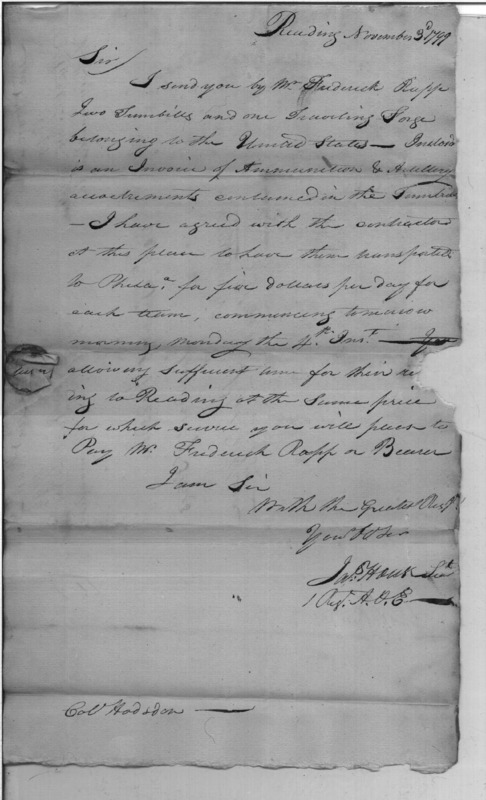 Reading November 3d 1799
Sir
I send you by Mr. Frederick Rapp
Two Tumbrills and one Traveling Forge
belonging to the United States — Inclosed
is an Invoice of Ammunition & Artillery
attachments contained in the Tumbrils
— I have agreed with the contractor
at this place to have them transported
to Phila.a for five dollars per day for
each team, commencing tomorrow
morning Monday the 4th Inst. —
allowing sufficient time for their re
ing to Reading at the Same price
for which service you will please to
Pay Mr. Frederick Rapp or Bearer
I am Sir
With the Greatest
Your Ob Ser
Jas. House Lieut
1 Regt. A. & E
Colo Hodsdon —